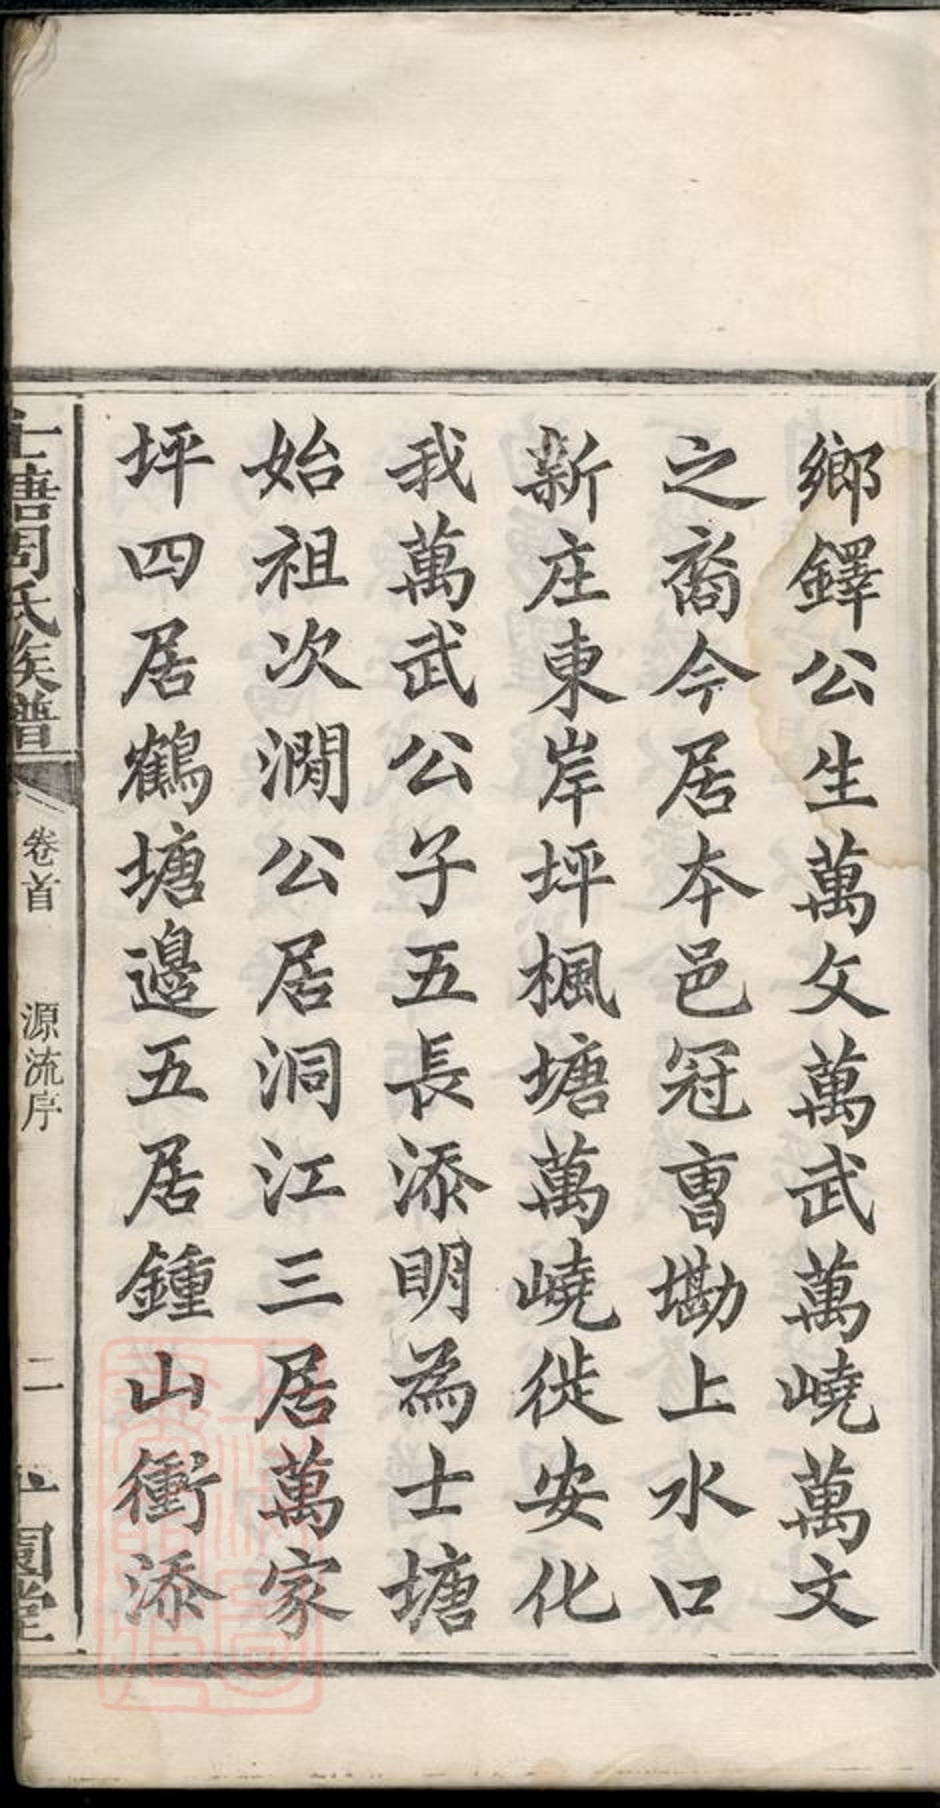 鄉鐸公生萬文萬武萬嶢萬文
之裔今居本邑冠曺墈上水口
新庄東岸坪楓塘萬嶢徙安化
我萬武公子五長添明為士塘
始祖次濶公居洞江三居萬家
坪四居鶴塘邊五居鍾山衝添
士塘周氏族譜
卷首
源流序
二
園堂